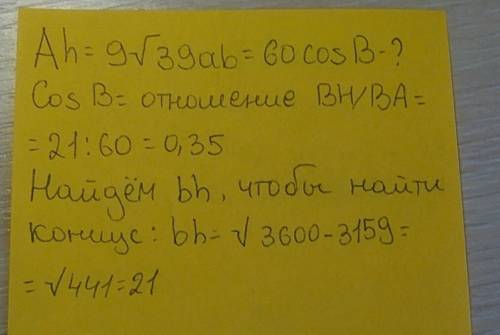 Ah= 9√39ab= 60 cosB-?
CosB= отношение BH/BA=
= 21:60 = 0,35
Найдём bh, чтобы найти
концус: bh= √3600-3159=
= √441=21